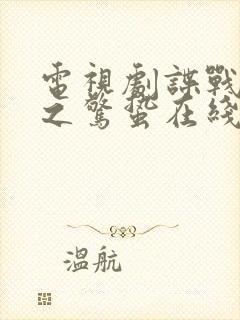 電視劇諜戰
之驚蟄在綫
溫航